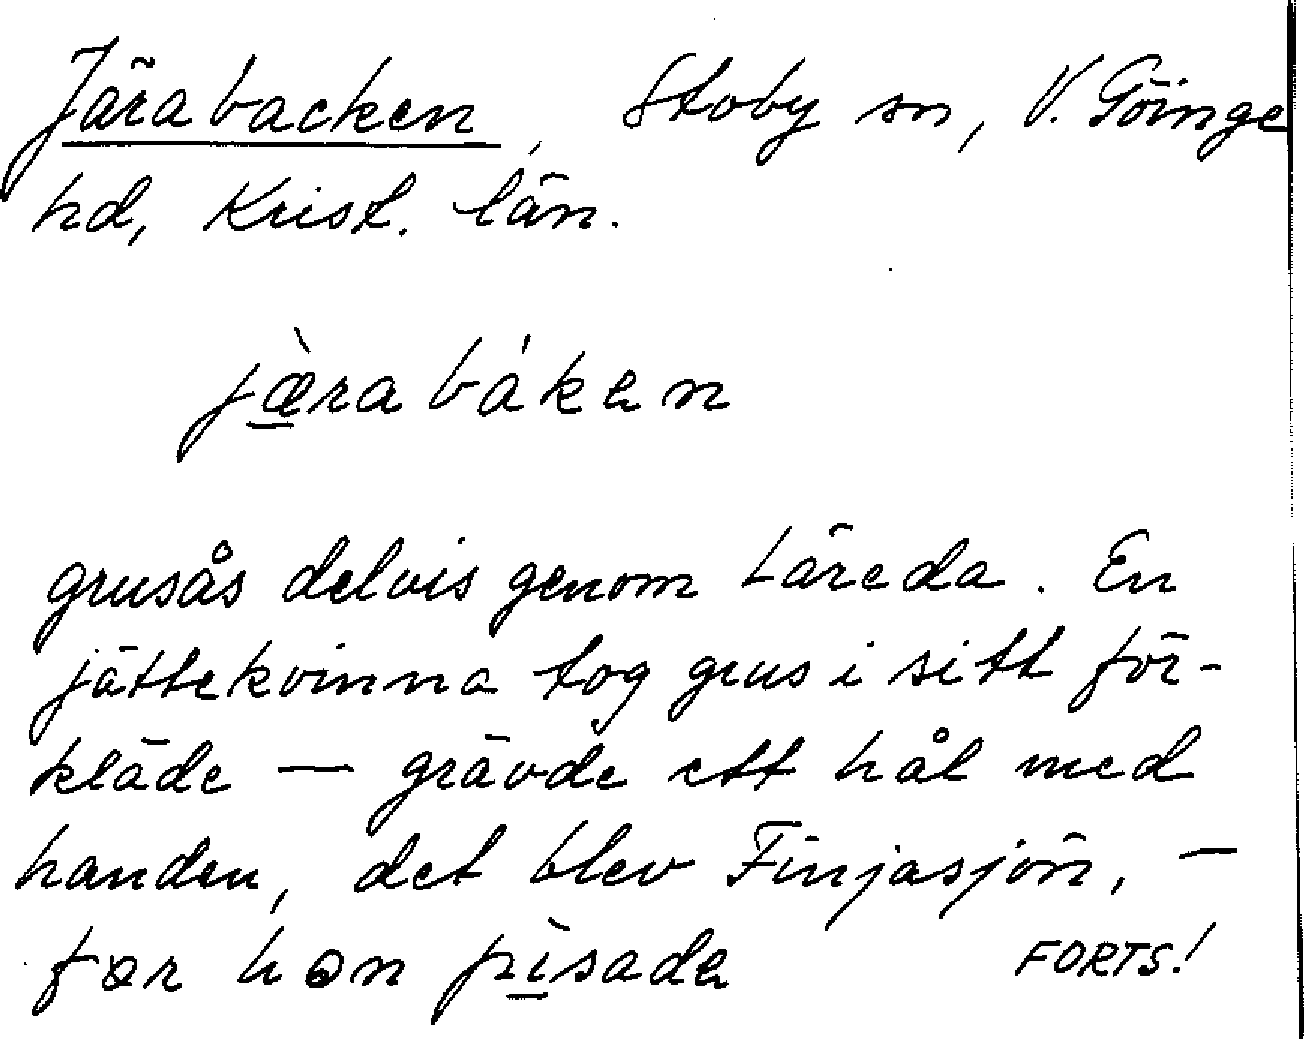 Järabacken, Stoby sn, V. Göinge
hd, Krist. län.
jæ̀ra bákən
grusås delvis genom Läreda. En
jättekvinna tog grus i sitt för-
kläde — grävde ett hål med
handen, det blev Finjasjön, —
før hon pìsadə FORTS!